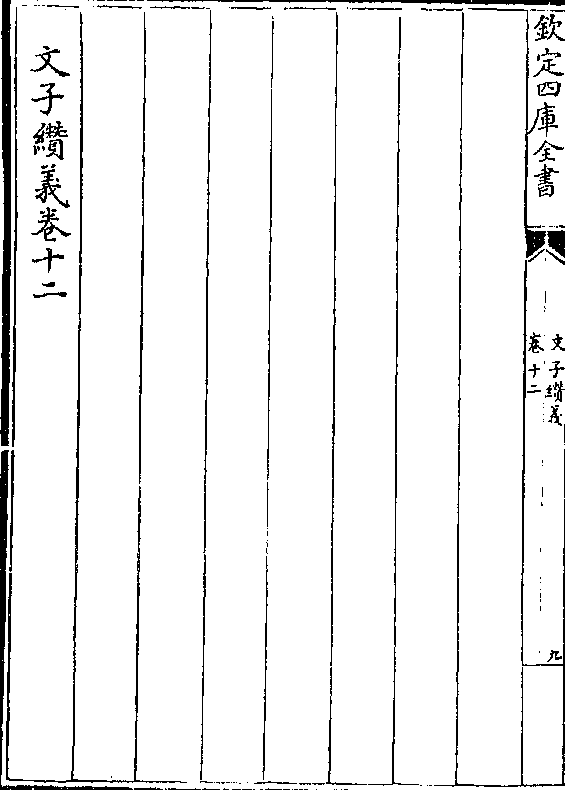 欽定四庫全書
文子纘義
卷十二
九
文子纘義卷十二